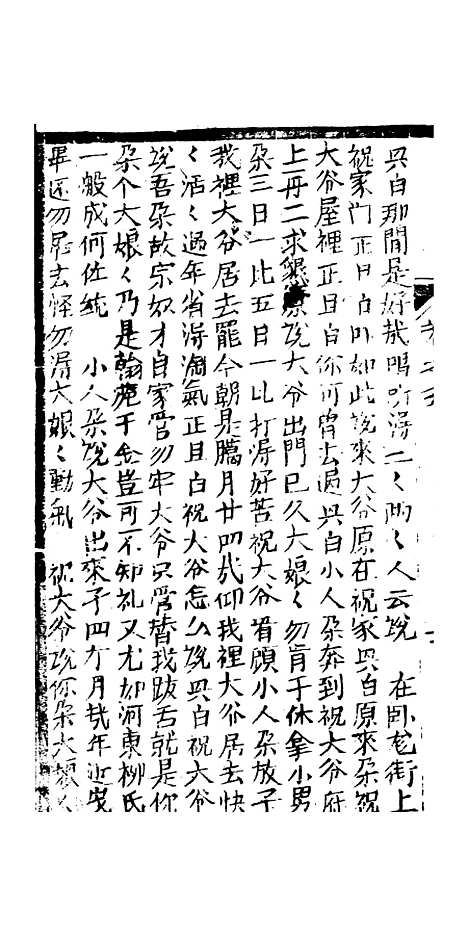 吳白那間是好哉嗚听得二〻兩〻人云說　在卧龙街上
祝家门正旦白卟如此說來大爷原在祝家吳白原來朵祝
大爷屋裡正旦白你可曾去過吳白小人朵奔到祝大爷府
上再二求懇祝說大爷出門已久大娘〻勿肯干休拿小男
朵三日一比五日一比打得好苦祝大爷看顾小人朵放子
我裡大爷居去罷今朝是臈月廿四哉仰我裡大爷居去快
〻活〻過年省得淘氣正旦白祝大爷怎么說吳白祝大爷
說吾朵故宗奴才自家管勿牢大爷只管替我跋舌就是你
朵个大娘〻乃是翰苑千金豈可不知礼又尤如河東柳氏
一般成何体統　小人朵說大爷出來子四个月哉年近歲
畢還勿居去怪勿得大娘〻動氣　祝大爷說你朵大娘〻